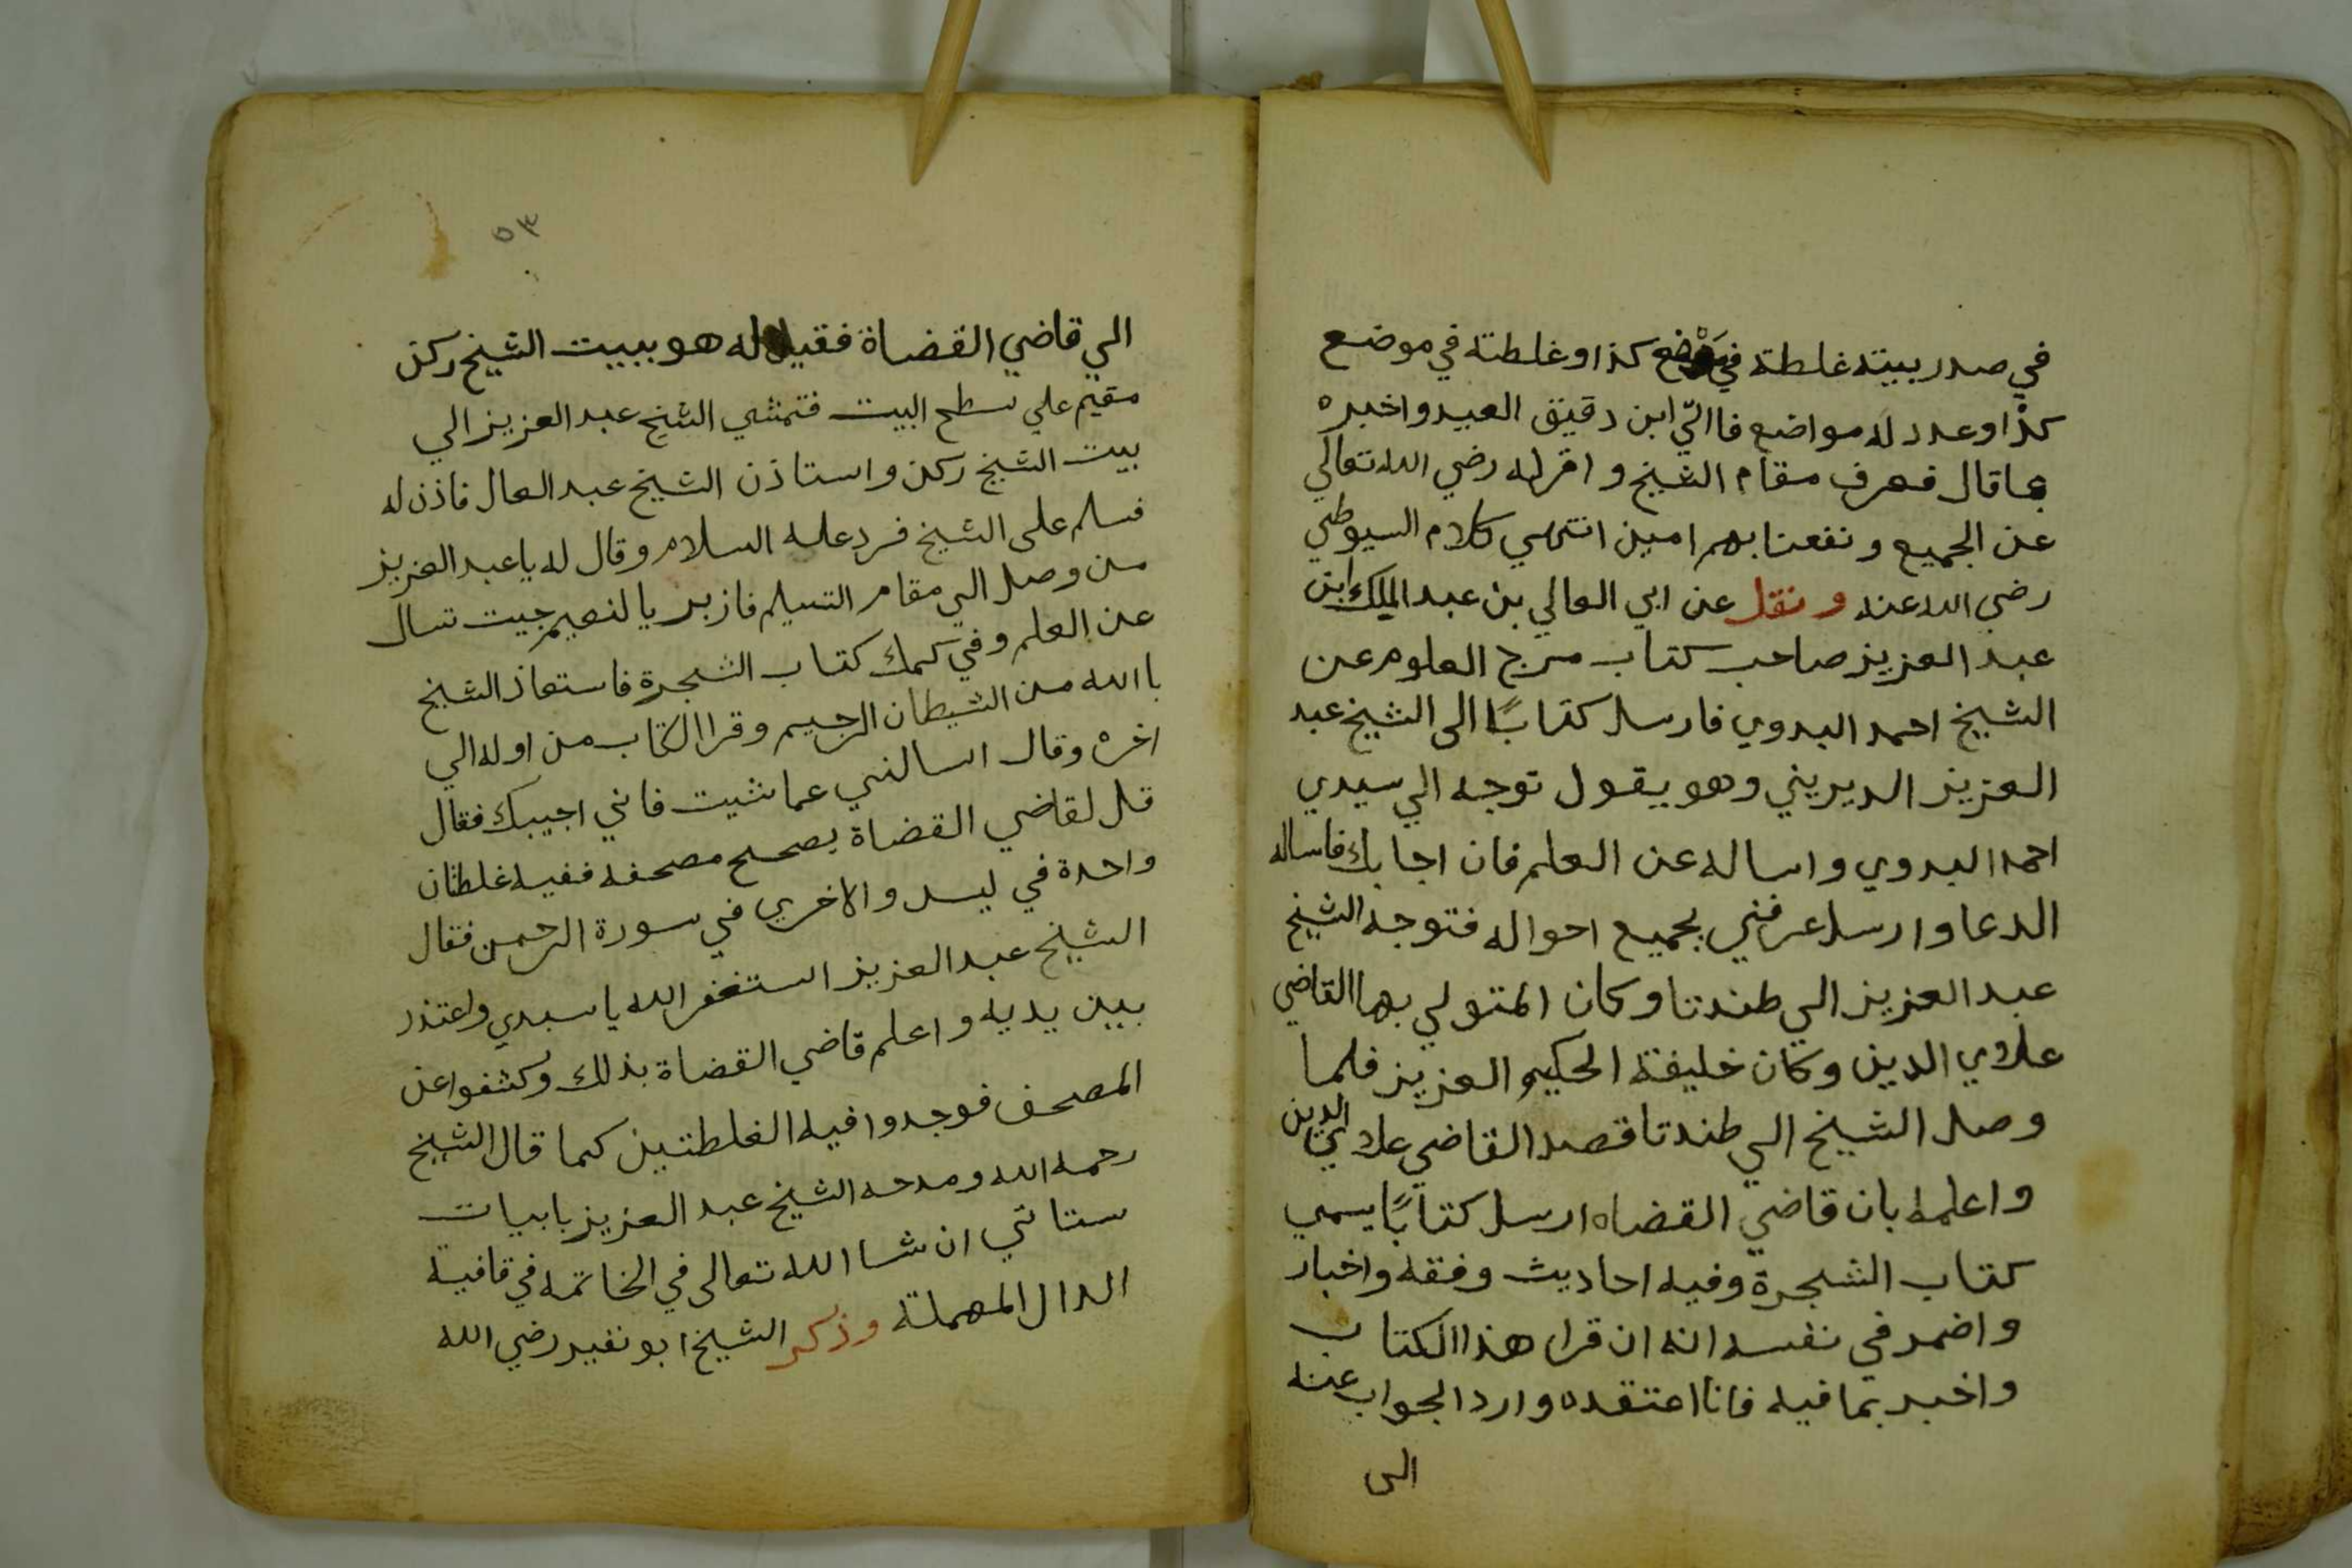 في صدر بيته غلطة في موضع كذا وغلطته في موضع
كذا وعدد له مواضع فاالي ابن دقيق العيد واخبره
بما قال فعرف مقام الشيخ واقر له رضي الله تعالي
عن الجميع ونفعنا بهم امين انتهي كلام السيوطي
رضي الله عنه ونقل عن ابي العالي بن عبد الملك ابن
عبد العزيز صاحب كتاب سرج العلوم عن
الشيخ احمد البدوي فارسل كتابًا الى الشيخ عبد
العزيز الديريني وهو يقول توجه الي سيدي
احمد البدوي واساله عن العلم فان اجابك فاساله
الدعا وارسل عرفني بجميع احواله فتوجه الشيخ
عبد العزيز الي طندتا وكان المتولي بها القاضي
علاوي الدين وكان خليفة الحكيم العزيز فلما
وصل الشيخ الي طندتا قصد القاضي علاي الدين
واعلمه بان قاضي القضاه ارسل كتابًا يسمي
كتاب الشجرة وفيه احاديث وفقه واخبار
واضمر في نفسه انه ان قرا هذا الكتاب
واخبر بما فيه فانا اعتقده وارد الجواب عنه
الى
٥٣
الي قاضي القضاة فقيل له هو ببيت الشيخ ركن
مقيم علي سطح البيت فتمشي الشيخ عبد العزيز الي
بيت الشيخ ركن واستاذن الشيخ عبد العال فاذن له
فسلم على الشيخ فرد عليه السلام وقال له يا عبد العزيز
من وصل الي مقام التسليم فاز بريا لنعيم جيت تسال
عن العلم وفي كمك كتاب الشجرة فاستعاذ الشيخ
باالله من الشيطان الرجيم وقرا الكتاب من اوله الي
اخره وقال اسالني عما شيت فاني اجيبك فقال
قل لقاضي القضاة يصحح مصحفه ففيه غلطتان
واحدة في ليس والاخري في سورة الرحمن فقال
الشيخ عبد العزيز استغفر الله يا سيدي واعتذر
بين يديه واعلم قاضي القضاة بذلك وكشفوا عن
المصحف فوجدوا فيه الغلطتين كما قال الشيخ
رحمه الله ومدحه الشيخ عبد العزيز بابيات
ستاتي ان شا الله تعالى في الخاتمه في قافية
الدال المهملة وذكر الشيخ ابو نفير رضي الله